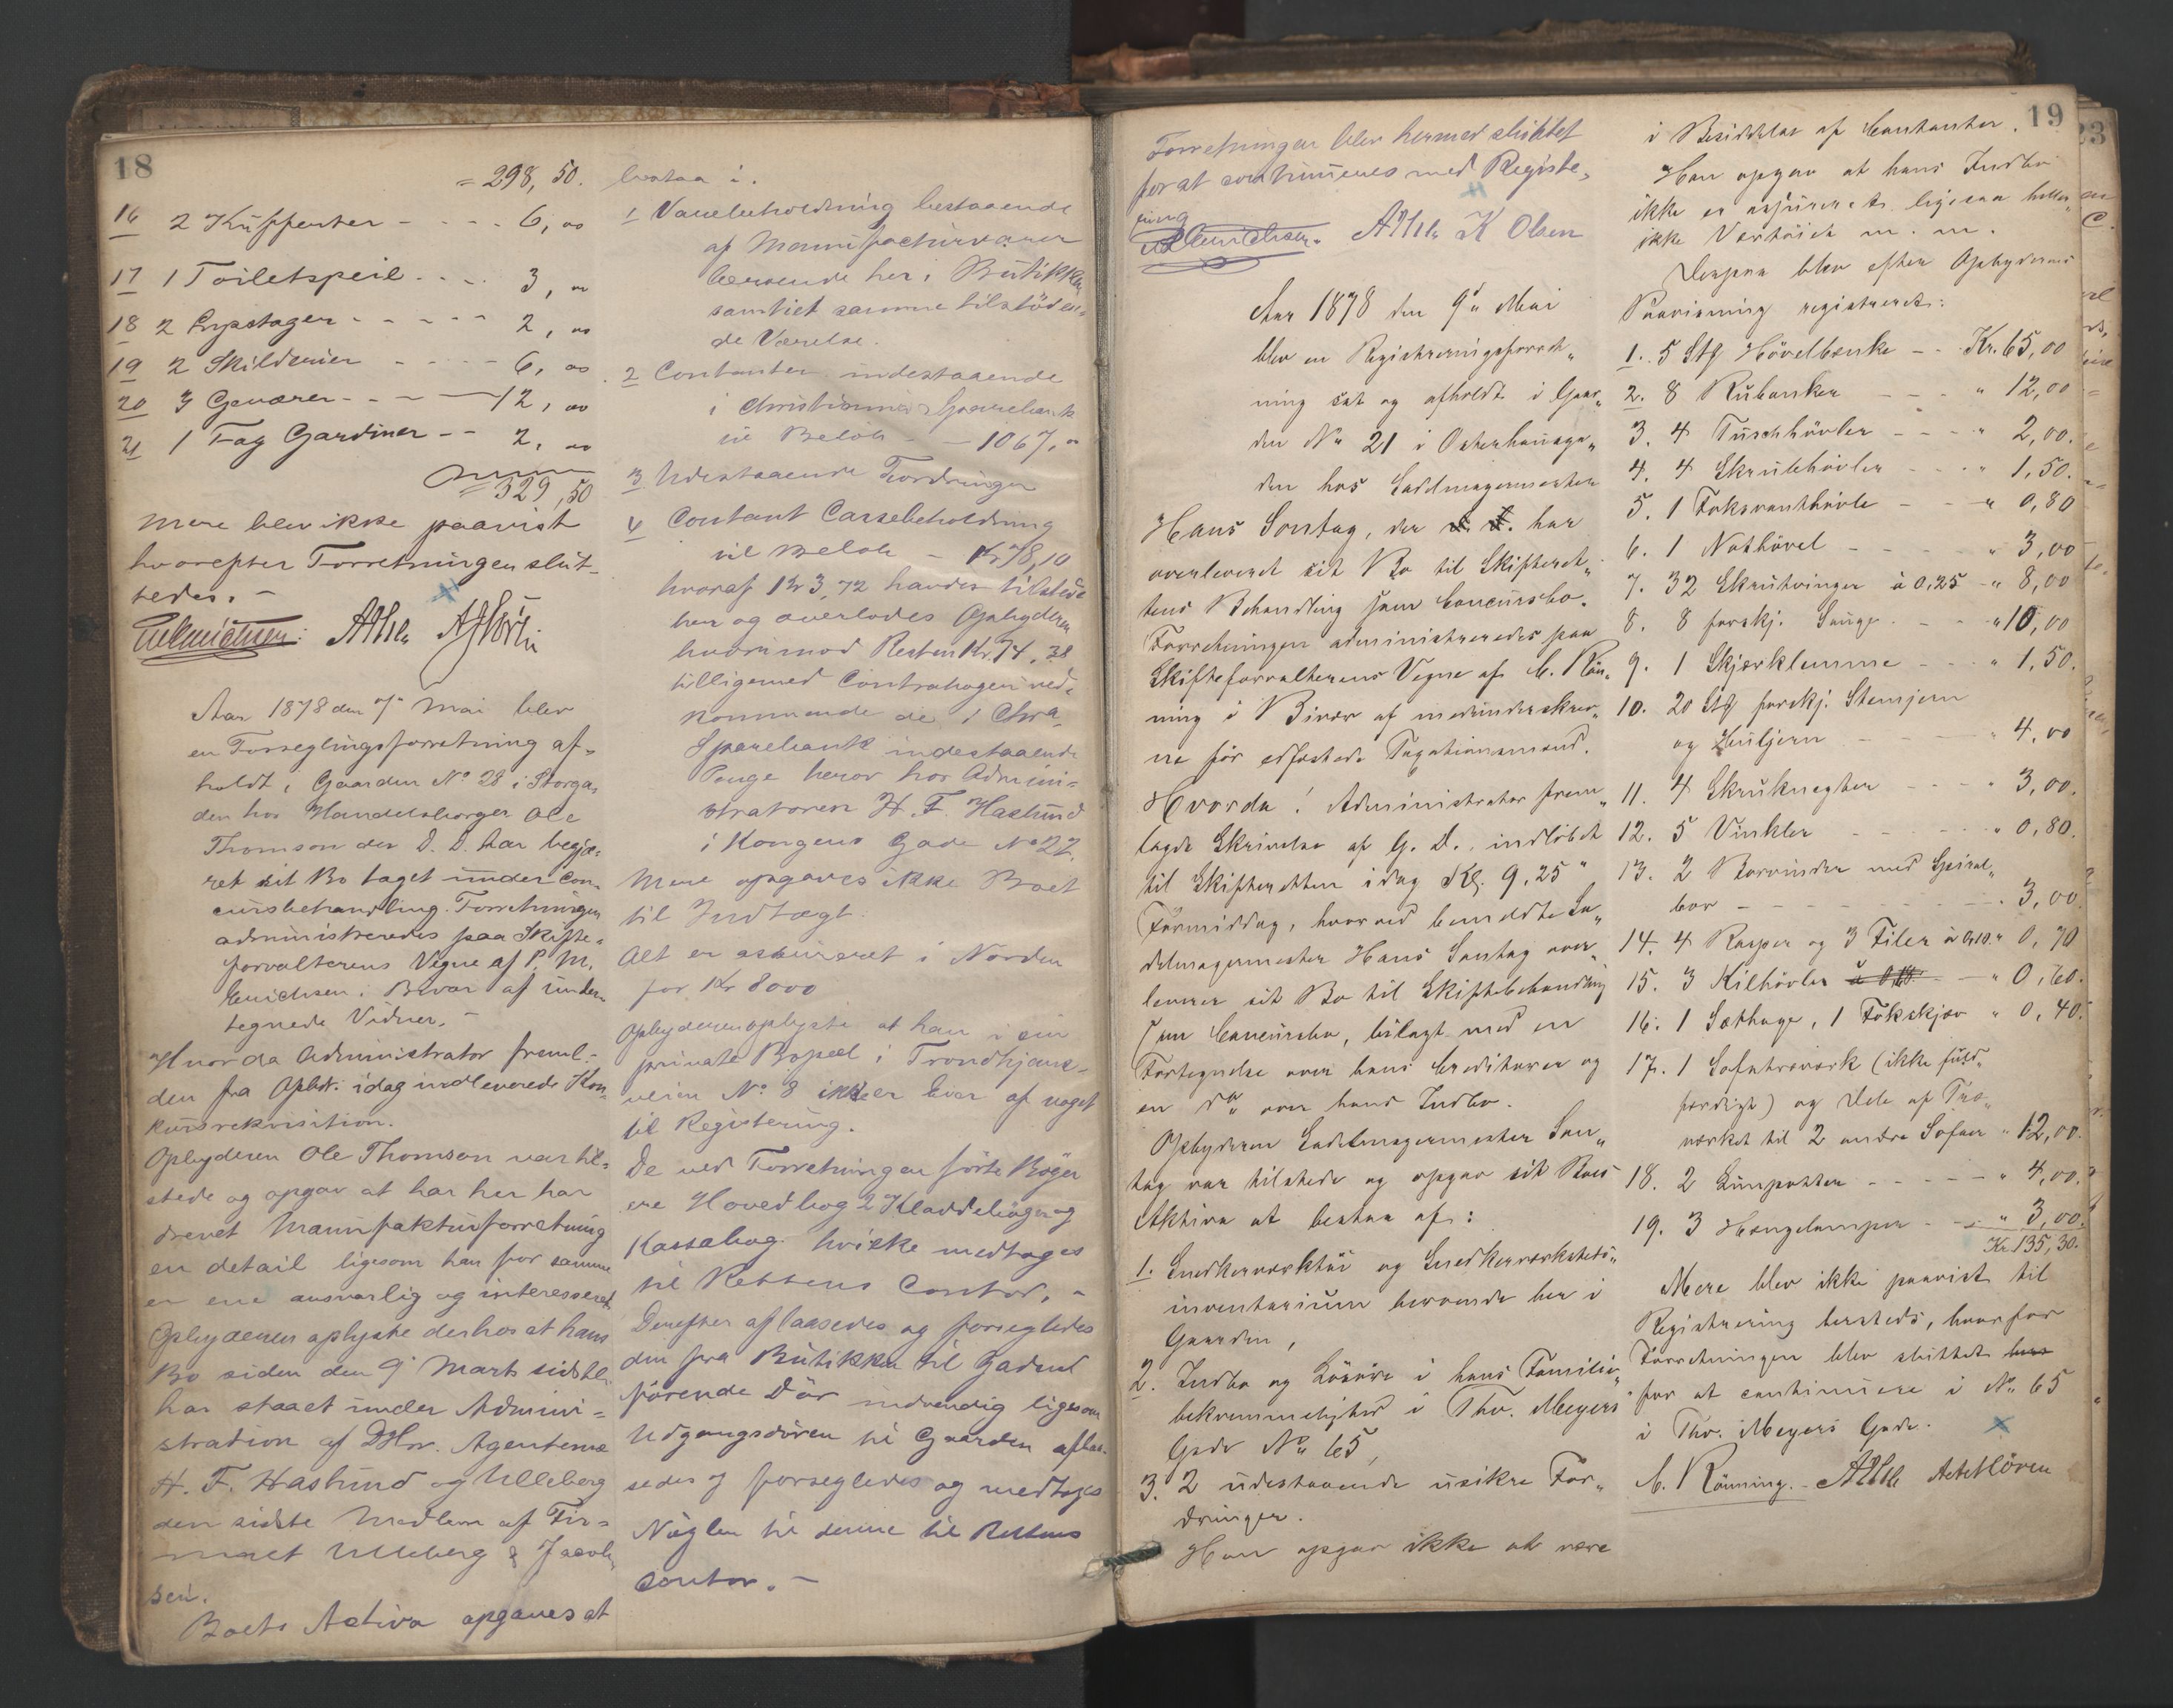 18
= 298, 50.
16 2 Kufferter - - - 6, 00
17 1 Toiletspeil - - - 3, 00
18 2 Lysstager - - - - - 2, 00
19 2 Skilderier - - - - 6, 00
20 3 Geværer - - - - 12, 00
21 1 Fag Gardiner - - 2, 00
= 329, 50
Mere blev ikke paavist
hvorefter Forretningen slut-
tedes. -
Aar 1878 den 7de Mai blev
en Forseglingsforretning af-
holdt i Gaarden No 28 i Storga-
den hos Handelsborger Ole
Thomson der D. D. har begjæ-
ret sit Bo taget under Con-
cursbehandling. Forretningen
administreredes paa Skifte-
forvalterens Vegne af P. M.
Erichsen i Bivær af under-
tegnede Vidner. -
Hvorda Administrator freml.
den fra Opbd. idag indleverede Kon-
kursrekvisition.
Opbyderen Ole Thomson var til-
stede og opgav at han her har
drevet Manufakturforretning
en detail ligesom han for samme
er ene ansvarlig og interesseret
Opbyderen oplyste derhos at hans
Bo siden den 9de Marts sidstl.
har staaet under Admini-
stration af DHrr. Agenterne
H. F. Haslund og Ulleberg
den sidste Medlem af Fir-
maet Ulleberg & Jacob-
sen.
Boets Activa opgaves at
bestaa i.
1 Varebeholdning bestaaende
af Manufacturvarer
beroende her i Butikken
samt i et samme tilstöden-
de Værelse.
2 Contanter indestaaende
i Christiania Sparebank
til Belöb - - 1067, 00
3 Udestaaende Fordringer
4 Contant Cassebeholdning
til Belöb - Kr 78,10
hvoraf Kr 3,72 havdes tilstede
her og overlodes Opbyderen
hvorimod Resten Kr. 74, 38
tilligemed Contrabogen ved-
kommende de i Chra
Sparebank indestaaende
Penge beror hos Admini-
stratoren H. F. Haslund
i Kongens Gade No 22.
Mere opgaves ikke Boet
til Indtægt.
Alt er assureret i Norden
for Kr 8000
Opbyderen oplyste at han i sin
private Bopæl i Trondhjems-
veien No 8 ikke er Eier af noget
til Registrering.
De ved Forretningen förte Böger
ere Hovedbog 2 Kladdeböger og
Kassabog hvilke medtoges
til Rettens Contor. -
Derefter aflaasedes og forsegledes
den fra Butikken til Gaden
förende Dör indvendig ligesom
Udgangsdören til Gaarden aflaa-
sedes og forsegledes og medtoges
Nöglen til denne til Rettens
Contor. -
19
Forretningen blev hermed sluttet
for at continueres med Registre-
ring
K Olsen
Aar 1878 den 9de Mai
blev en Registreringsforret-
ning sat og afholdt i Gaar-
den No 21 i Osterhausga-
den hos Sadelmagermester
Hans Sontag, der d. D. har
overleveret sit Bo til Skifteret-
tens Behandling som Concursbo.
Forretningen administreredes paa
Skifteforvalterens Vegne af C. Rön-
ning i Bivær af medunderskrev-
ne för edfæstede Taxationsmænd.
Hvorda! Administrator frem-
lagde Skrivelse af G. D., indlöbet
til Skifteretten idag Kl. 9,25
Formiddag, hvorved bemeldte Sa-
delmagermester Hans Sontag over-
leverer sit Bo til Skiftebehandling
som Concursbo, bilagt med en
Fortegnelse over hans Creditorer og
en do over hans Indbo.
Opbyderen Sadelmagermester Son-
tag var tilstede og opgav sit Boes
Aktiva at bestaa af:
1. Snedkerværktöi og Snedkerværksteds-
inventarium beroende her i
Gaarden,
2. Indbo og Lösöre i hans Familie-
bekvemmelighed i Thv. Meyers
Gade No 65,
3. 2 udestaaende usikre For-
dringer.
Han opgav ikke at være
i Besiddelse af Contanter.
Han opgav at hans Indbo
ikke er assureret ligesaa heller
ikke Værktöiet m. m.
Derpaa blev efter Opbyderens
Paavisning registreret:
1. 5 Stk Hövelbænke - - Kr. 65,00
2. 8 Rubanker - - - " 12,00
3. 4 Pudshövler - - - " 2,00.
4. 4 Skrubhövler - - - " 1,50.
5. 1 Fuksvanthövle - - " 0,80
6. 1 Nothövel - - - - " 3,00
7. 32 Skrutvinger à 0,25 - " 8,00
8. 8 forskj. Sauge - - - " 10,00
9. 1 Skjærklemme - - - " 1,50.
10. 20 Stk forskj. Stemjern
og Huljern - - - - " 4,00
11. 4 Skruknegter - - - " 3,00.
12. 5 Vinkler - - - - " 0,80.
13. 2 Borvinder med Spiral-
bor - - - - - - - " 3,00.
14. 4 Rasper og 3 Filer à 0,10. " 0,70
15. 3 Kilhövler - " 0,60.
16. 1 Sæthage, 1 Fukskjær " 0,40.
17. 1 Sofatræværk (ikke fuld-
færdigt) og Dele af Træ-
værket til 2 andre Sofaer " 12,00.
18. 2 Limpotter - - - - - " 4,00.
19. 3 Hængelamper - - - " 3,00.
Kr. 135,30.
Mere blev ikke paavist til
Registrering hersteds, hvorfor
Forretningen blev sluttet
for at continuere i No 65
i Thv. Meyers Gade.
C. Rönning.
23